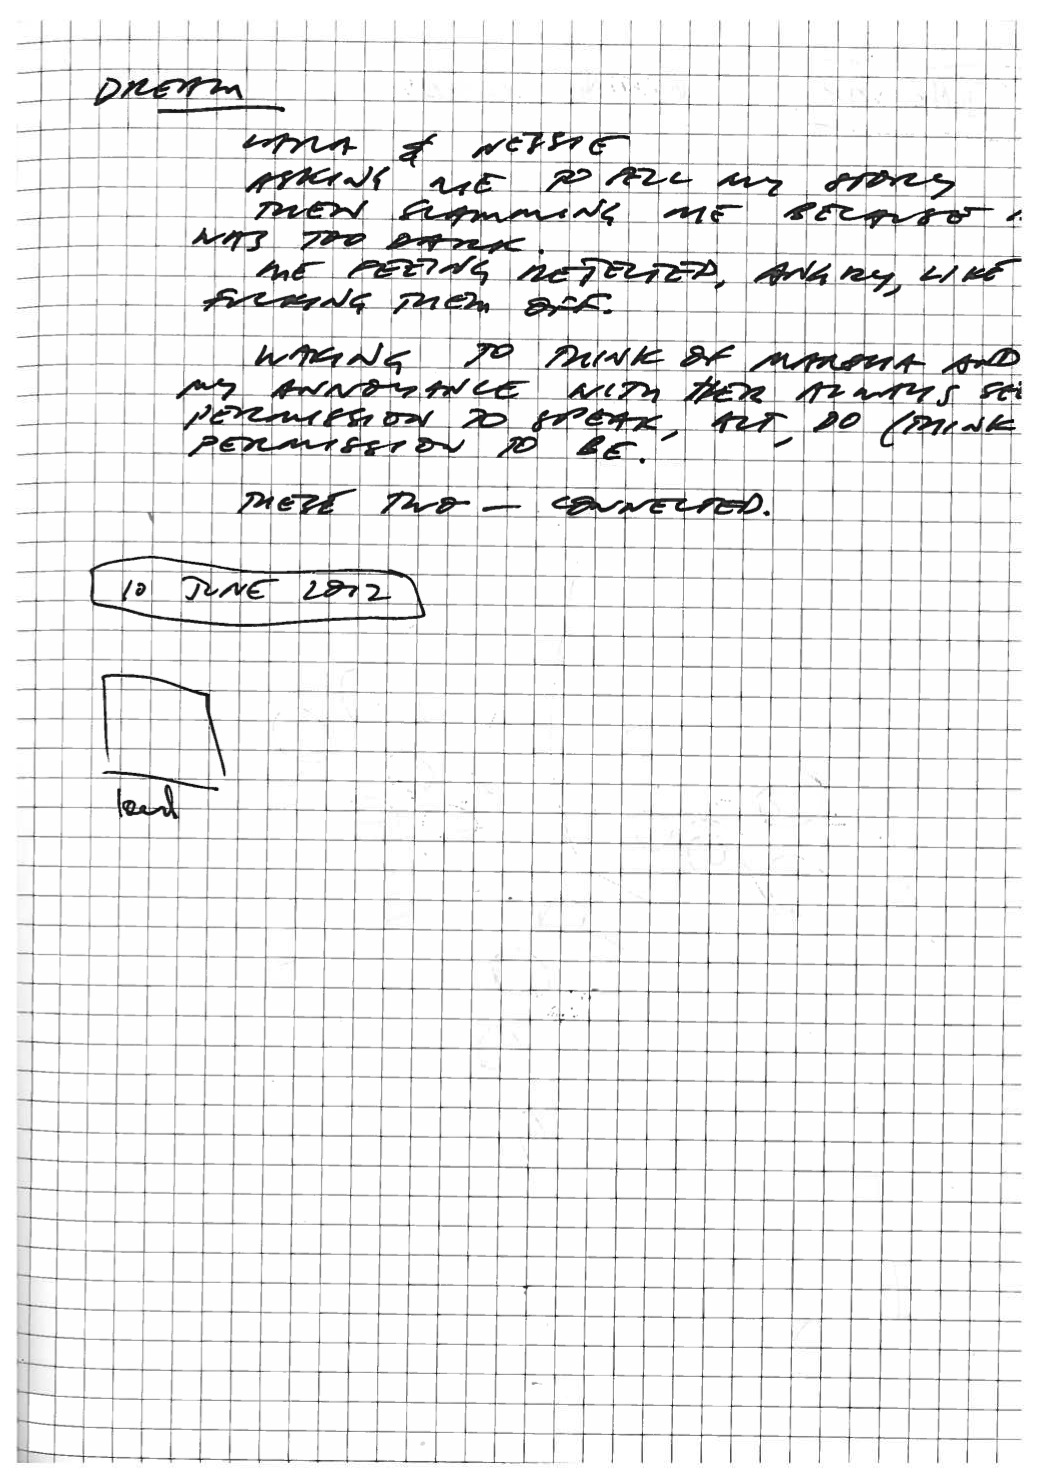 DREAM
LARA & NESSIE
ASKING ME TO TELL MY STORY
THEN SLAMMING ME BECAUSE
WAS TOO DARK.
ME FEELING REJECTED, ANGRY, LIKE
FUCKING THEM OFF.
WAKING TO THINK OF MARSHA AND
MY ANNOYANCE WITH HER ALWAYS
PERMISSION TO SPEAK, ACT, DO (THINK
PERMISSION TO BE.
THESE TWO — CONNECTED.
10 JUNE 2012